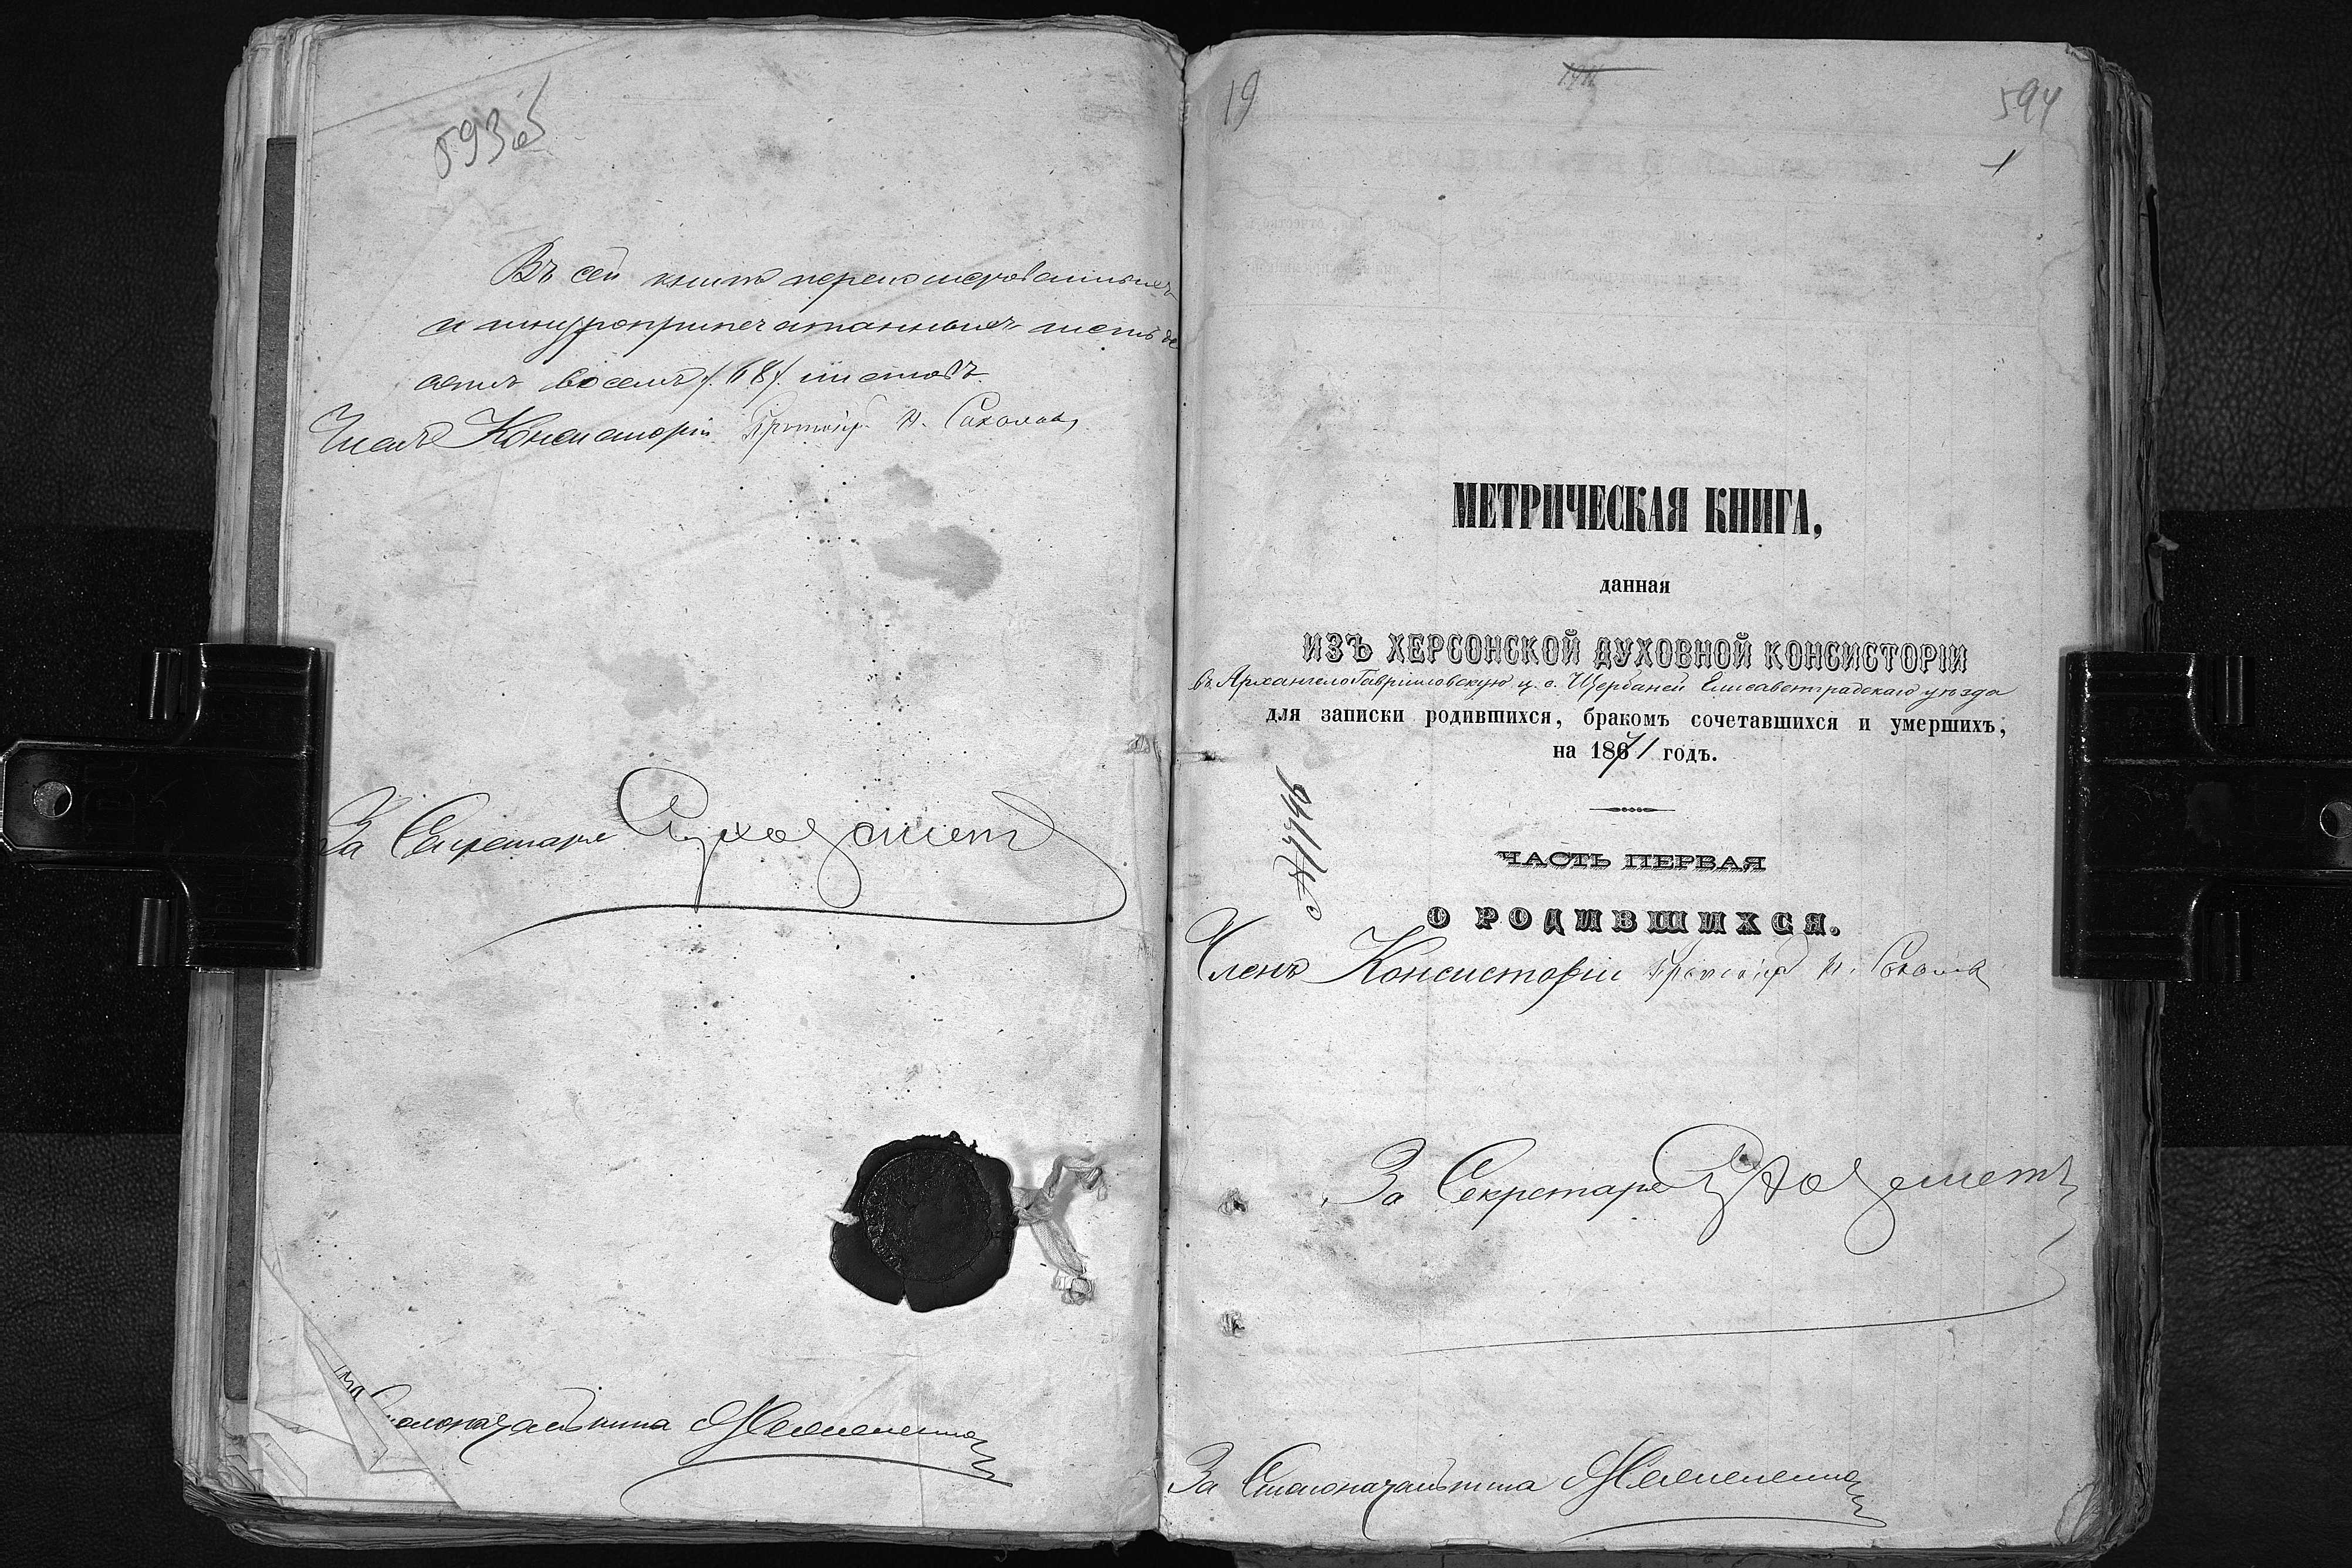 593об
Въ сей книгѣ перенумерованныхъ
и шнуроприпечатанныхъ шестьде
сятъ восемь /68/ листовъ.
Членъ Консисторіи Протоіер. Н. Соколовъ
За Секретаря
За Столоначальника
19
594
1
МЕТРИЧЕСКАЯ КНИГА,
данная
ИЗЪ ХЕРСОНСКОЙ ДУХОВНОЙ КОНСИСТОРІИ
въ Архангело Гавріиловскую ц. с. Щербаней Елисаветградскаго уѣзда
для записки родившихся, бракомъ сочетавшихся и умершихъ,
на 1871 годъ.
№ 7746
ЧАСТЬ ПЕРВАЯ
О РОДИВШИХСЯ.
Членъ Консисторіи Протоіер. Н. Соколовъ
За Секретаря
За Столоначальника